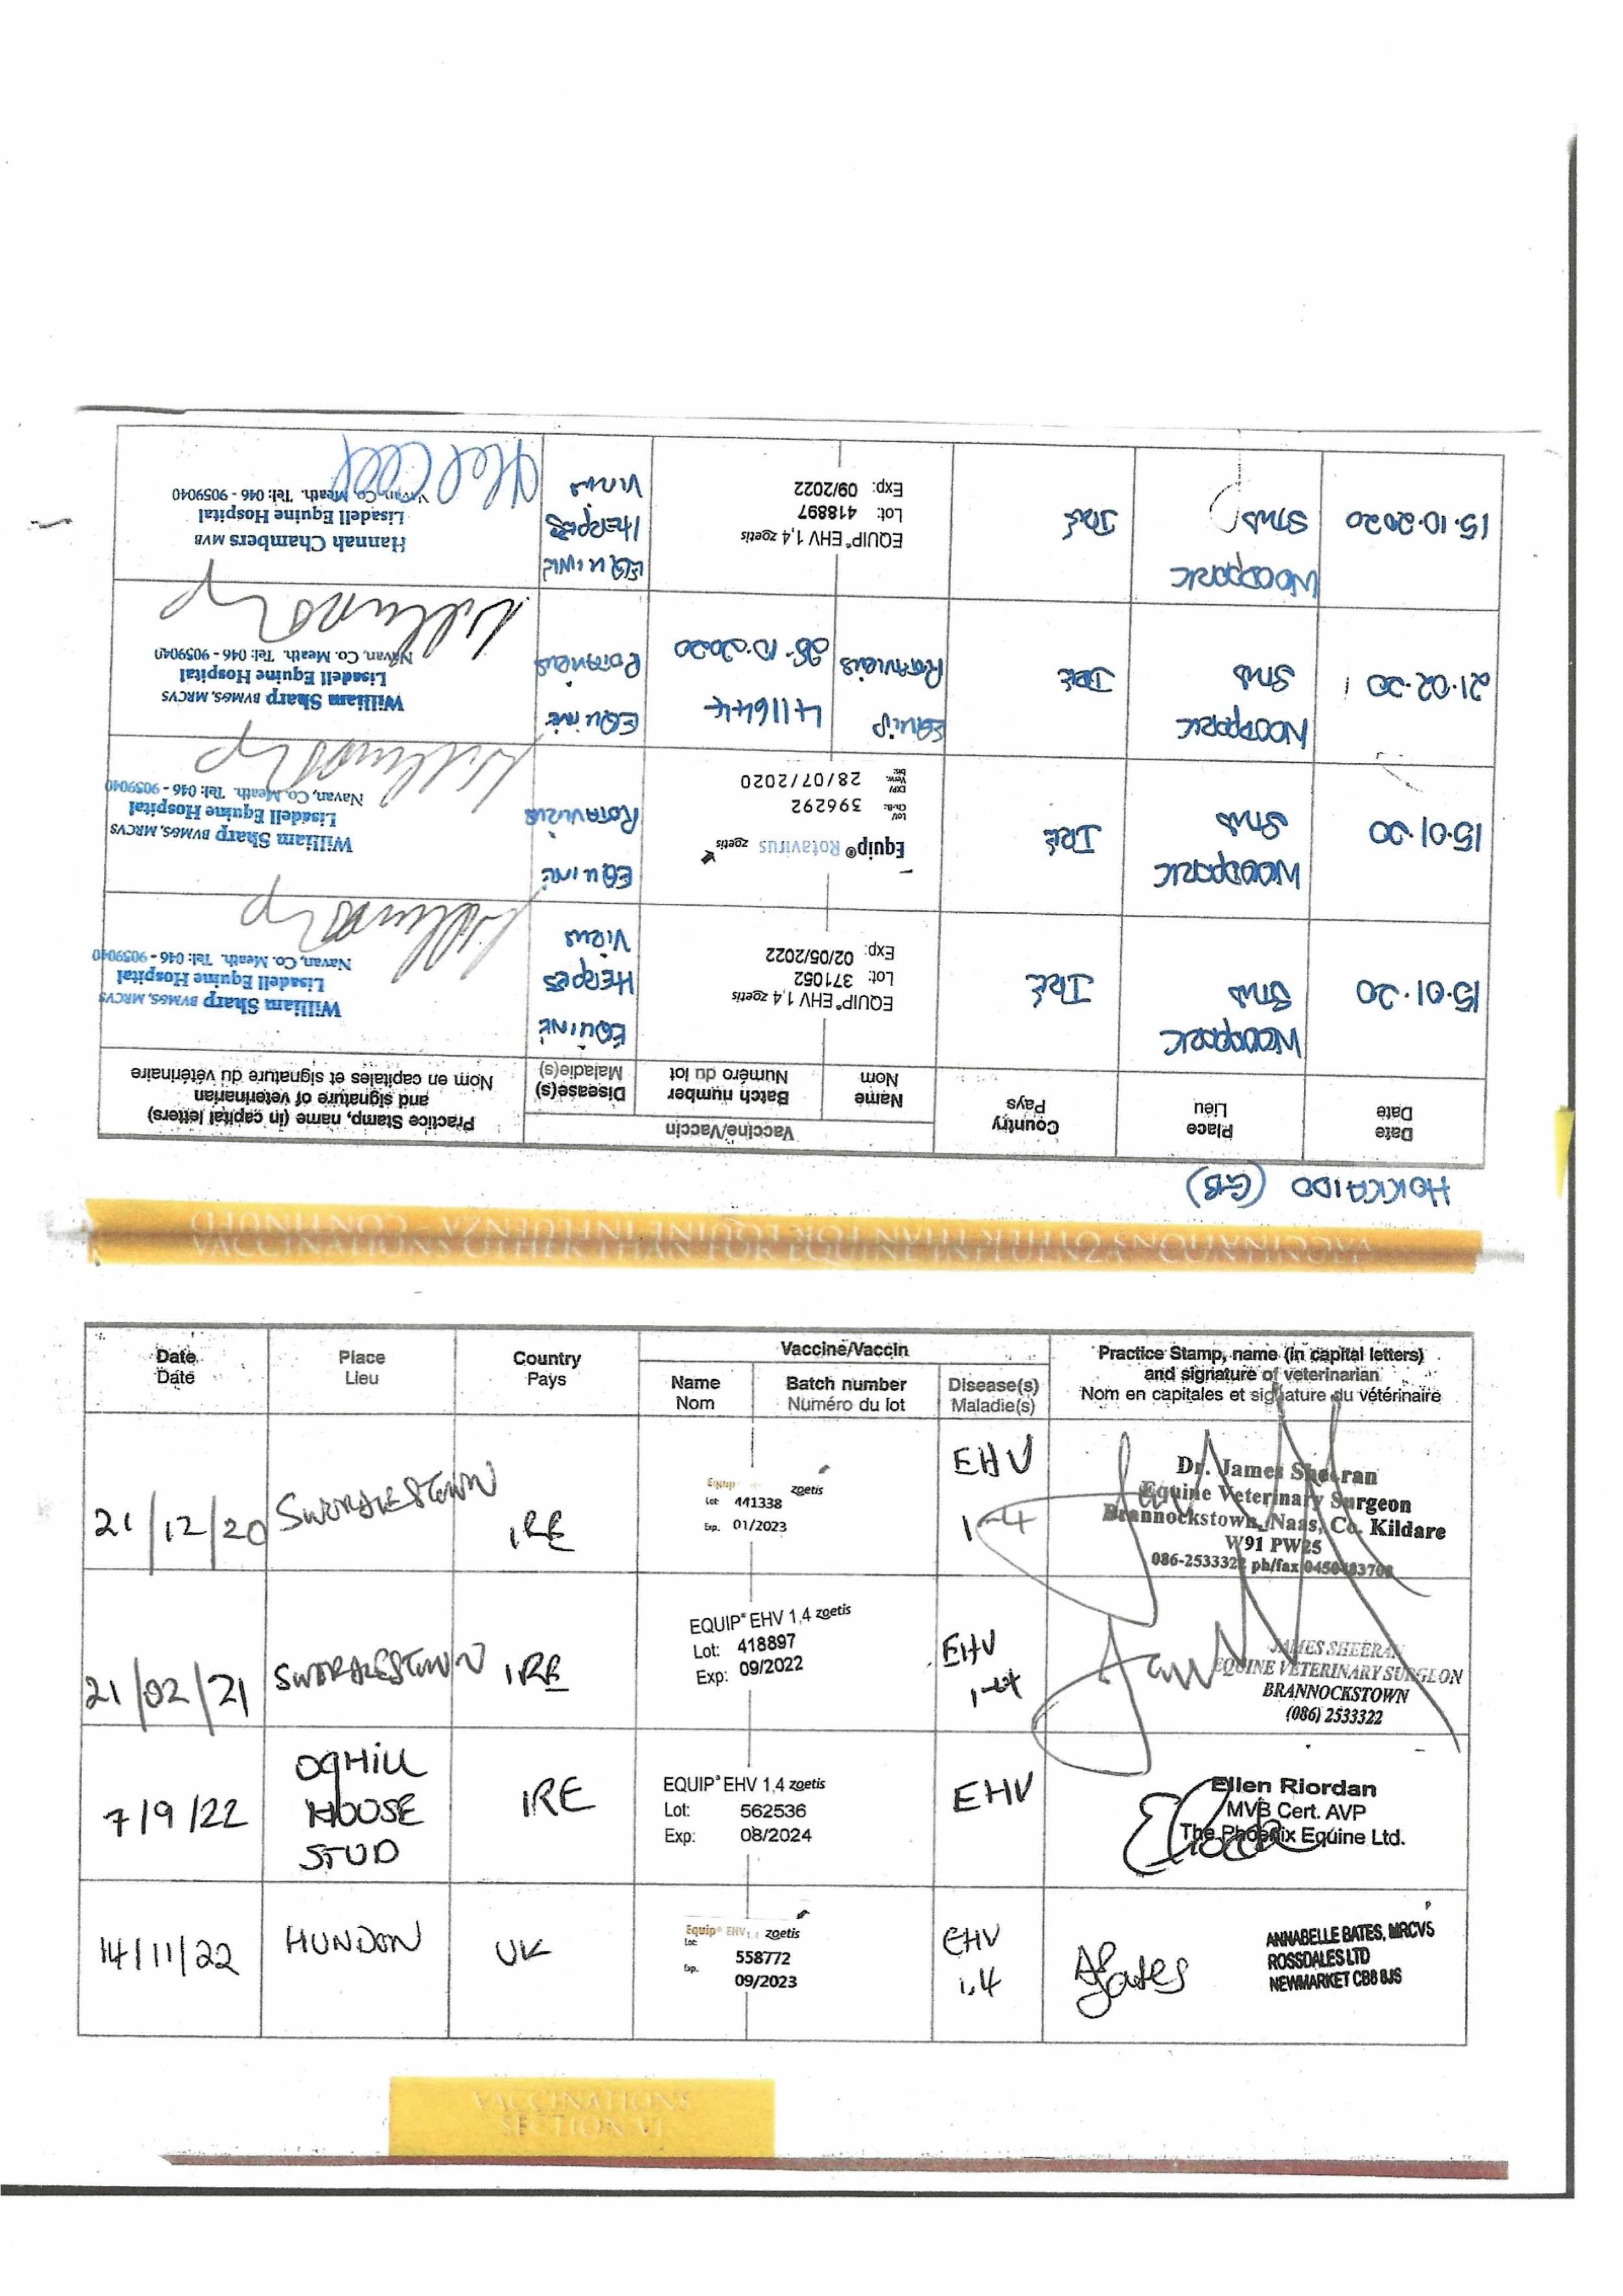 VACCINATIONS OTHER THAN FOR EQUINE INFLUENZA - CONTINUED
HOKKAIDO (GB)
Date
Date
Place
Lieu
Country
Pays
Vaccine/Vaccin
Name
Nom
Batch number
Numéro du lot
Disease(s)
Maladie(s)
Practice Stamp, name (in capital letters)
and signature of veterinarian
Nom en capitales et signature du vétérinaire
15.01.20
WOODPARK
STUD
IRE
EQUIP® EHV 1,4 zoetis
Lot: 371052
Exp: 02/05/2022
EQUINE
HERPES
VIRUS
William Sharp BVM&S, MRCVS
Lisadell Equine Hospital
Navan, Co. Meath. Tel: 046 - 9059040
15.01.20
WOODPARK
STUD
IRE
Equip® Rotavirus zoetis
396292
28/07/2020
EQUINE
ROTAVIRUS
William Sharp BVM&S, MRCVS
Lisadell Equine Hospital
Navan, Co. Meath. Tel: 046 - 9059040
21.02.20
WOODPARK
STUD
IRE
EQUIP
ROTAVIRUS
411644
28.10.2020
EQUINE
ROTAVIRUS
William Sharp BVM&S, MRCVS
Lisadell Equine Hospital
Navan, Co. Meath. Tel: 046 - 9059040
15.10.2020
WOODPARK
STUD
IRE
EQUIP® EHV 1,4 zoetis
Lot: 418897
Exp: 09/2022
EQUINE
HERPES
VIRUS
Hannah Chambers MVB
Lisadell Equine Hospital
Navan, Co. Meath. Tel: 046 - 9059040
Date
Date
Place
Lieu
Country
Pays
Vaccine/Vaccin
Name
Nom
Batch number
Numéro du lot
Disease(s)
Maladie(s)
Practice Stamp, name (in capital letters)
and signature of veterinarian
Nom en capitales et signature du vétérinaire
21/12/20
IRE
Equip zoetis
Lot: 441338
Exp. 01/2023
EHV
1-4
Dr. James Sheeran
Equine Veterinary Surgeon
Brannockstown, Naas, Co. Kildare
W91 PW25
086-2533322 ph/fax
21/02/21
IRE
EQUIP® EHV 1,4 zoetis
Lot: 418897
Exp: 09/2022
EHV
1-4
JAMES SHEERAN
EQUINE VETERINARY SURGEON
BRANNOCKSTOWN
(086) 2533322
7/9/22
OGHILL
HOUSE
STUD
IRE
EQUIP® EHV 1,4 zoetis
Lot: 562536
Exp: 08/2024
EHV
Ellen Riordan
MVB Cert. AVP
The Phoenix Equine Ltd.
14/11/22
HUNDON
UK
Equip® EHV 1,4 zoetis
Lot:
558772
Exp.
09/2023
EHV
1,4
ABates
ANNABELLE BATES, MRCVS
ROSSDALES LTD
NEWMARKET CB8 8JS
VACCINATIONS
SECTION VI